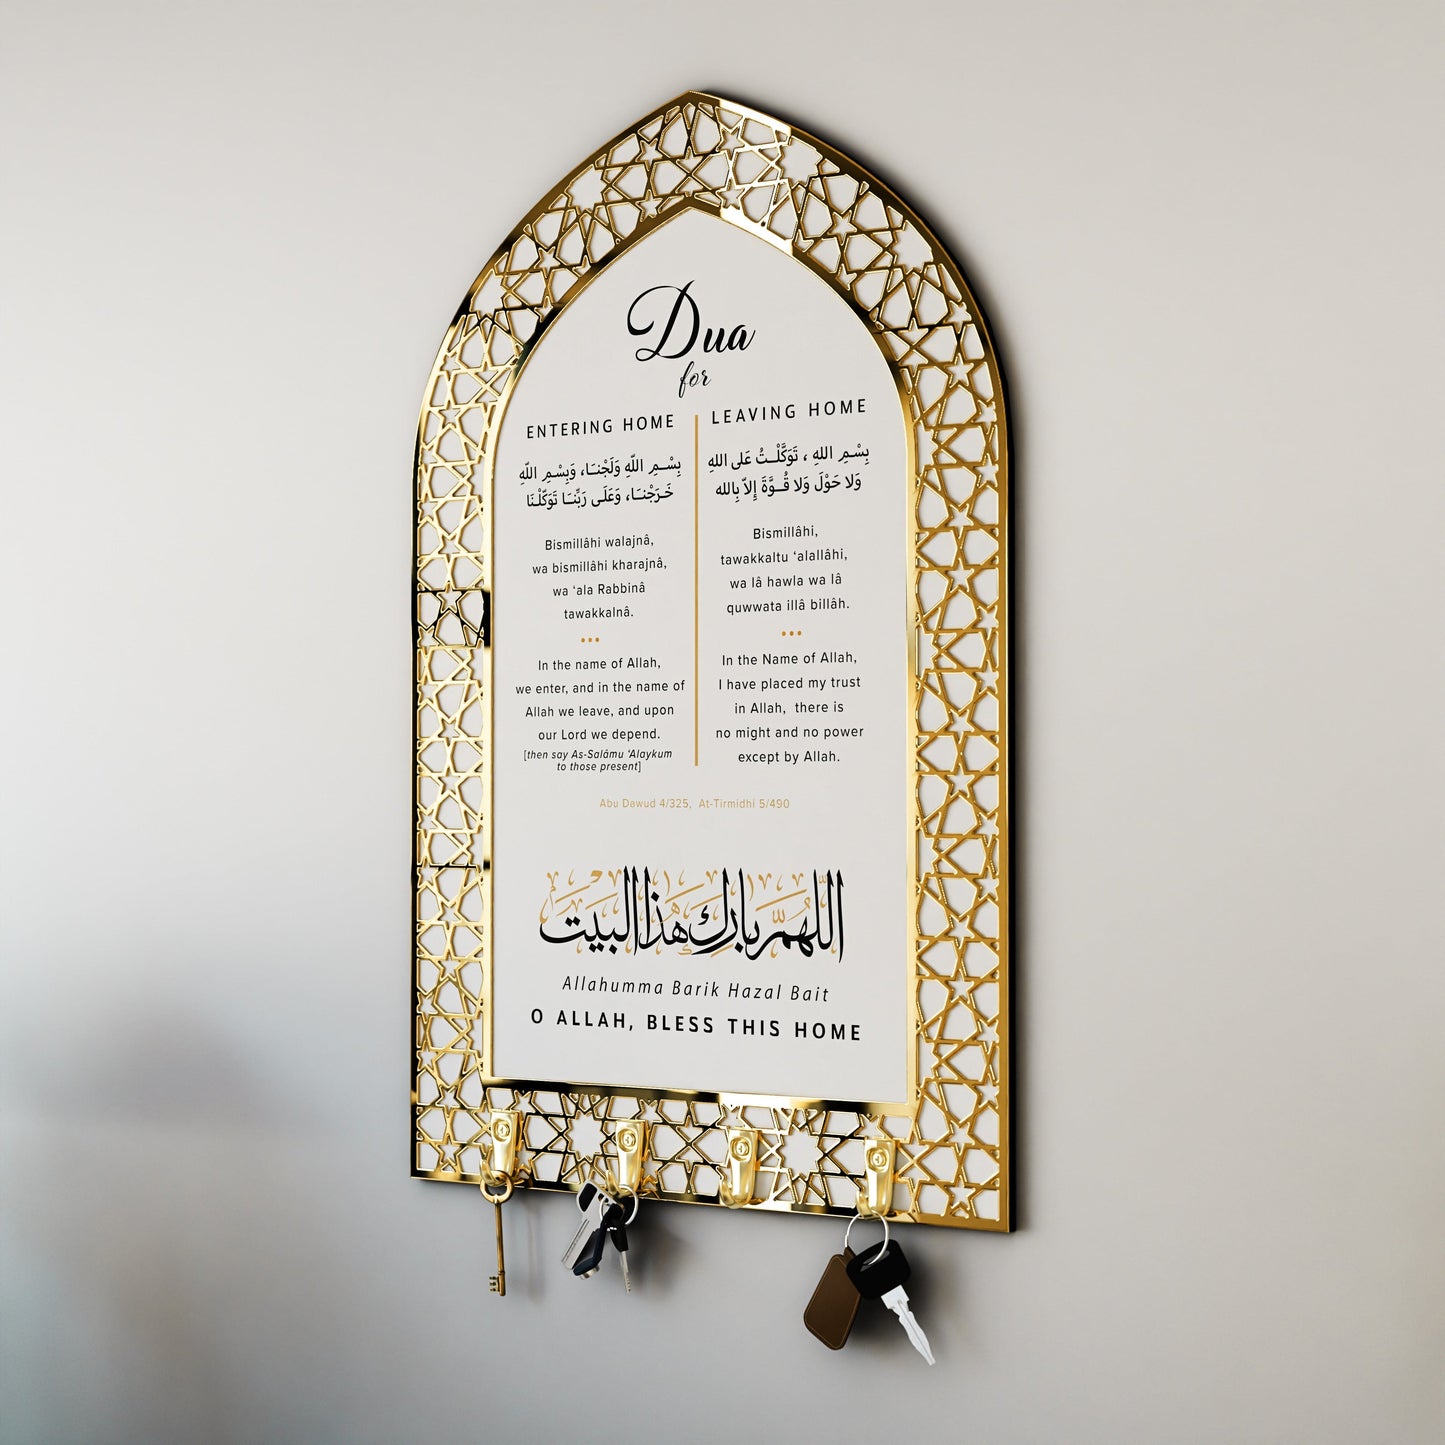 Dua
for
ENTERING HOME
بِسْـمِ اللّهِ وَلَجْنـَـا، وَبِسْـمِ اللّهِ
خَـرَجْنـَـا، وَعَلَـى رَبِّنـَا تَوَكَّلْـنَا
Bismillâhi walajnâ,
wa bismillâhi kharajnâ,
wa ‘ala Rabbinâ
tawakkalnâ.
In the name of Allah,
we enter, and in the name of
Allah we leave, and upon
our Lord we depend.
[then say As-Salâmu ‘Alaykum
to those present]
LEAVING HOME
بِسْمِ اللهِ ، تَوَكَّلْـتُ عَلى اللهِ
وَلا حَوْلَ وَلا قُـوَّةَ إِلاّ بِالله
Bismillâhi,
tawakkaltu ‘alallâhi,
wa lâ hawla wa lâ
quwwata illâ billâh.
In the Name of Allah,
I have placed my trust
in Allah, there is
no might and no power
except by Allah.
Abu Dawud 4/325, At-Tirmidhi 5/490
اللّهُمَّ بَارِك هَذَا البَيَت
Allahumma Barik Hazal Bait
O ALLAH, BLESS THIS HOME